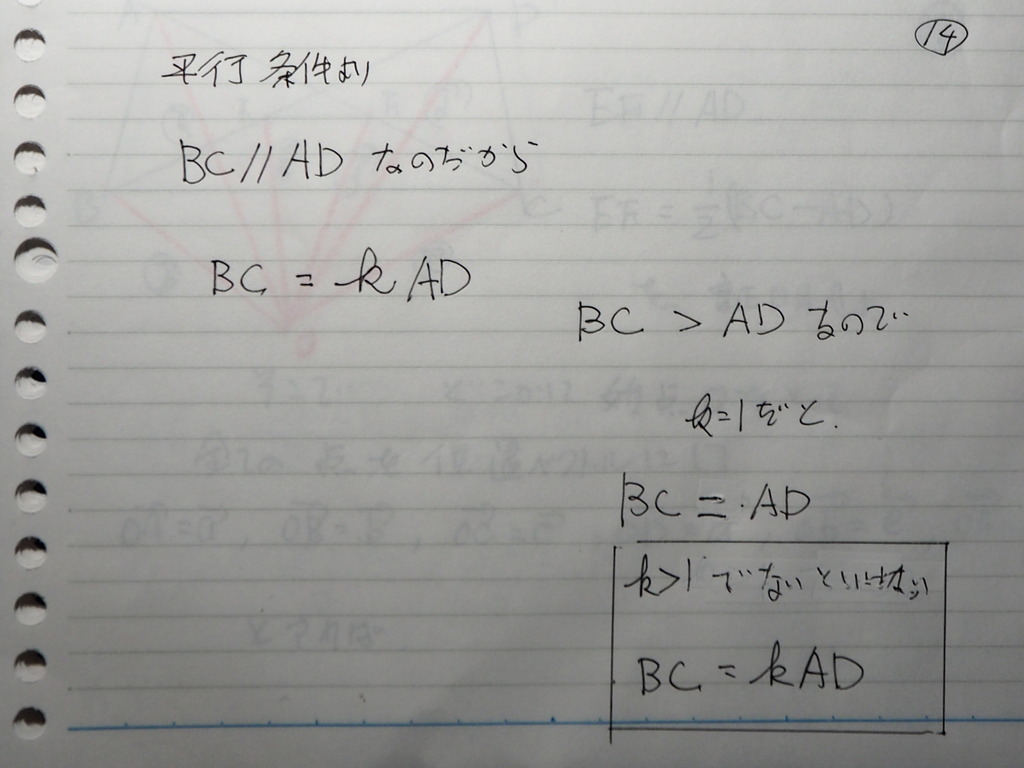 14
平行条件より
BC//ADなのだから
BC = k AD
BC > ADなので
k=1だと.
BC = AD
k>1でないといけない
BC = kAD
EF // AD
EF = 1/2(BC-AD)